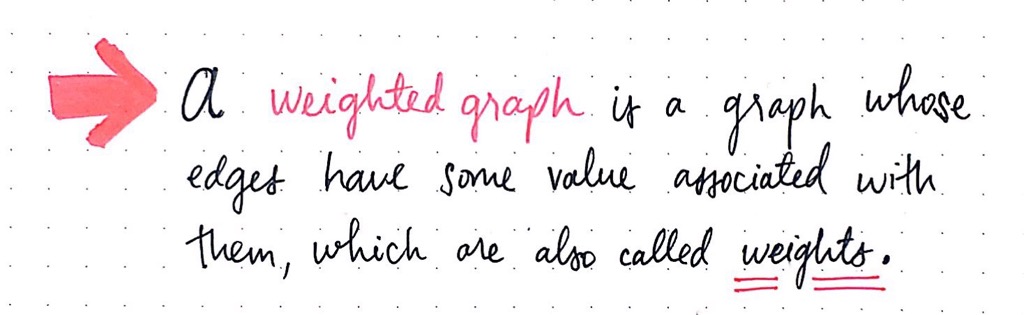 a weighted graph is a graph whose
edges have some value associated with
them, which are also called weights.